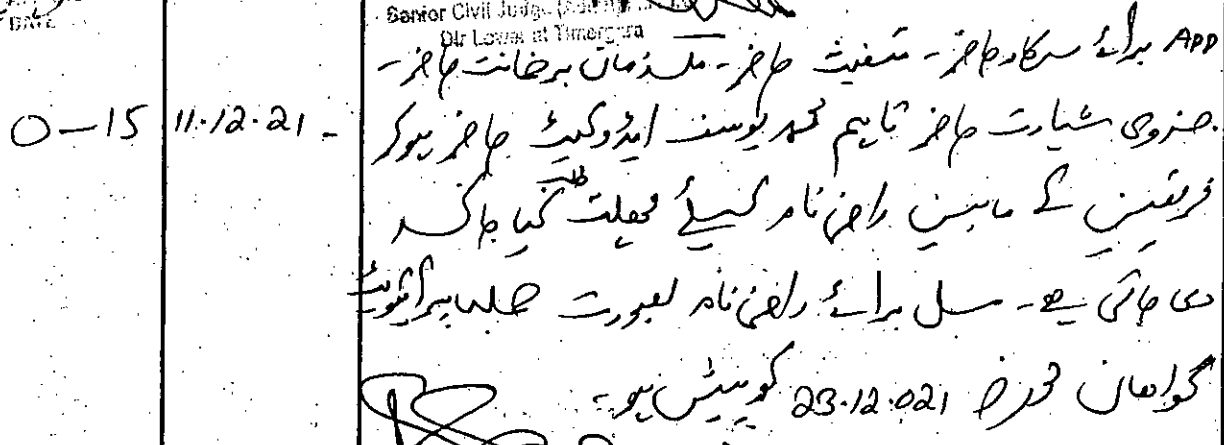 DATE
Senior Civil Judge
Dir Lower at Timergara
APP برائے سرکار حاضر۔ مستغیث حاضر۔ ملزمان برضانت حاضر۔
O-15 11.12.21 - جزوی شہادت حاضر تاہم محمد یوسف ایڈوکیٹ حاضر ہوکر
فریقین کے مابین راضی نامہ کیلئے مہلت طلب کیا جاکر
دی جاتی ہے۔ مسل برائے راضی نامہ بصورت پرائیویٹ
گواہان مورخہ 23.12.021 کو پیش ہو۔